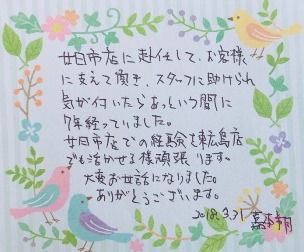 廿日市店に赴任して、お客様
に支えて頂き、スタッフに助けられ
気が付いたらあっという間に
7年経っていました。
廿日市店での経験を東広島店
でも活かせる様頑張ります。
大変お世話になりました。
ありがとうございます。
2018.3.31